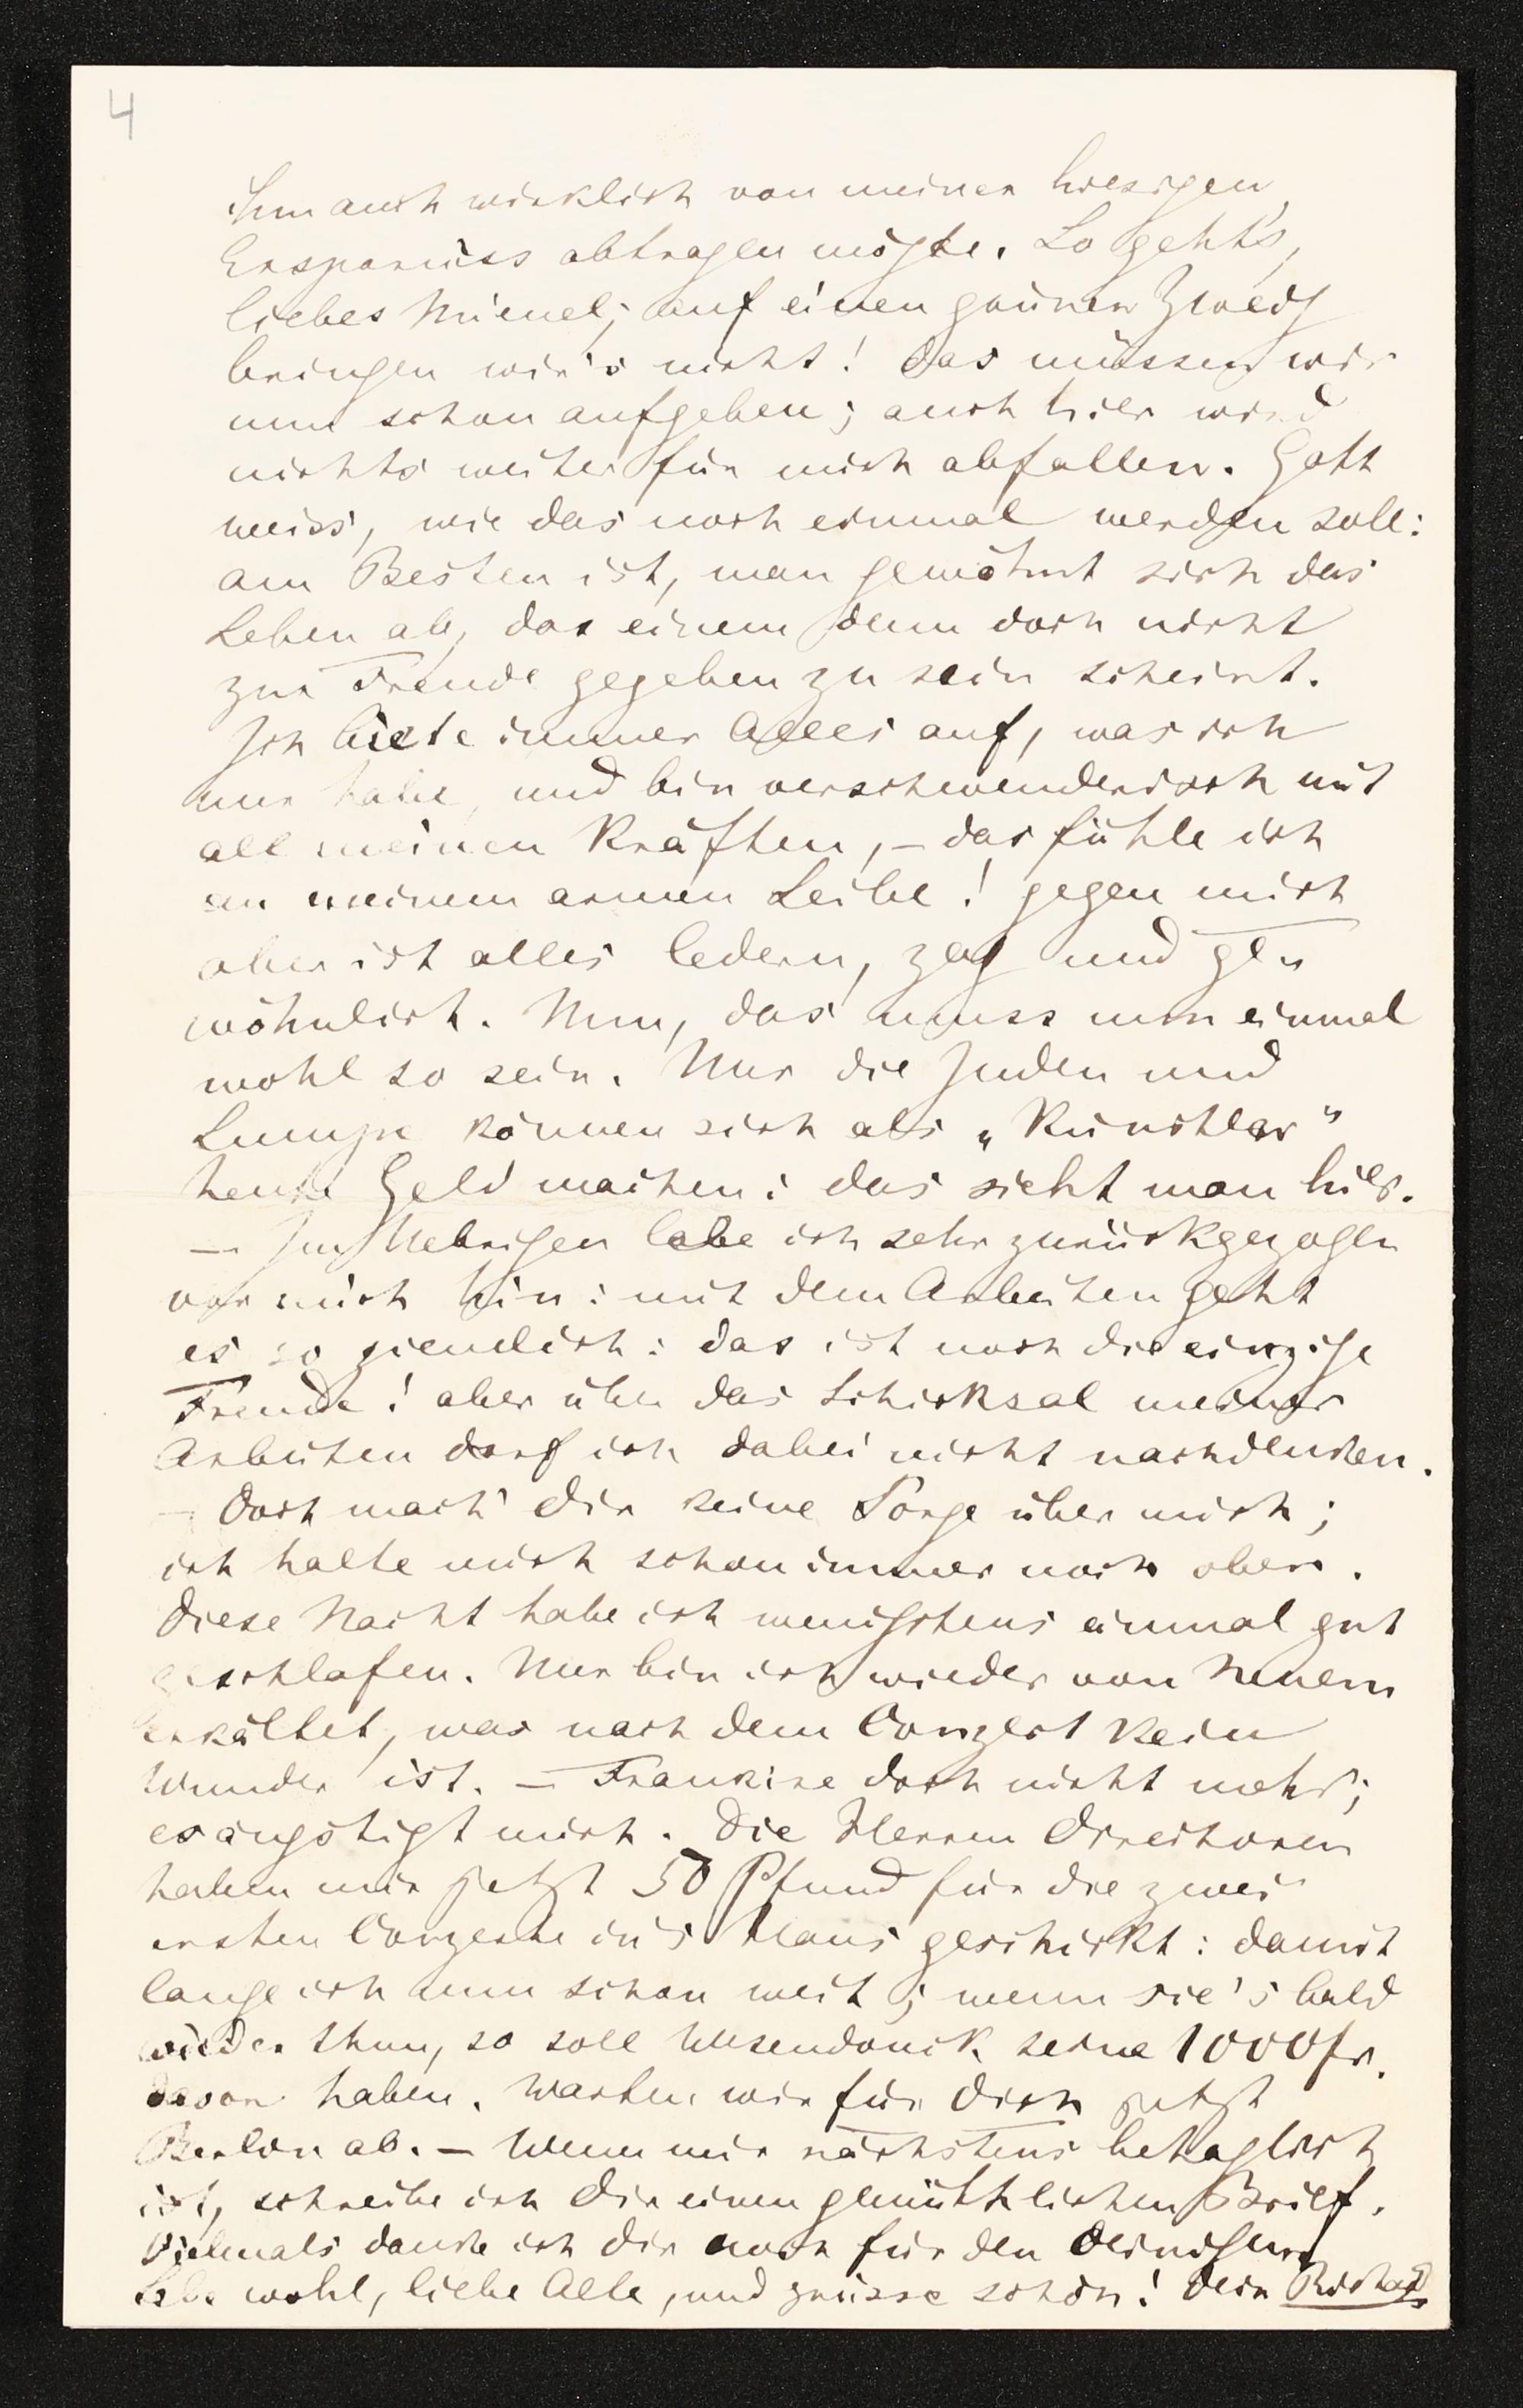 4
ihm auch wirklich von meiner hiesigen
Ersparniss abtragen mögte. So geht's,
liebes Mienel; auf einen grünen Zweig
bringen wir's nicht! Das müssen wir
nun schon aufgeben; auch hier wird
nichts weiter für mich abfallen. Gott
weiss, wie das noch einmal werden soll:
am Besten ist, man gewöhnt sich das
Leben ab, das einem denn doch nicht
zur Freude gegeben zu sein scheint.
Ich biete immer Alles auf, was ich
nur habe, und bin verschwenderisch mit
all meinen Kräften, – das fühle ich
an meinem armen Leibe! gegen mich
aber ist alles ledern, zag und ge-
wöhnlich. Nun, das muss nun einmal
wohl so sein. Nur die Juden und
Lumpe können sich als „Künstler"
heute Geld machen: das sieht man hier.
– Im Uebrigen lebe ich sehr zurückgezogen
vor mich hin: mit dem Arbeiten geht
es so ziemlich: das ist noch die einzige
Freude! aber über das Schicksal meiner
Arbeiten darf ich dabei nicht nachdenken.
– Doch mach' Dir keine Sorge über mich;
ich halte mich schon immer noch oben.
Diese Nacht habe ich wenigstens einmal gut
geschlafen. Nur bin ich wieder von Neuem
erkältet, was nach dem Conzert kein
Wunder ist. – Frankire doch nicht mehr;
es ängstigt mich. Die Herren Direktoren
haben mir jetzt 50 Pfund für die zwei
ersten Conzerte in's Haus geschickt: damit
lange ich nun schon weit; wenn sie's bald
wieder thun, so soll Wesendonck seine 1000 fr.
davon haben. Warten wir für Dich jetzt
Berlin ab. – Wenn mir nächstens behaglich
ist, schreibe ich Dir einen gemüthlichen Brief.
Vielmals danke ich Dir noch für den Deinigen.
Lebe wohl, liebe Alte, und grüsse schön! Dein Richard